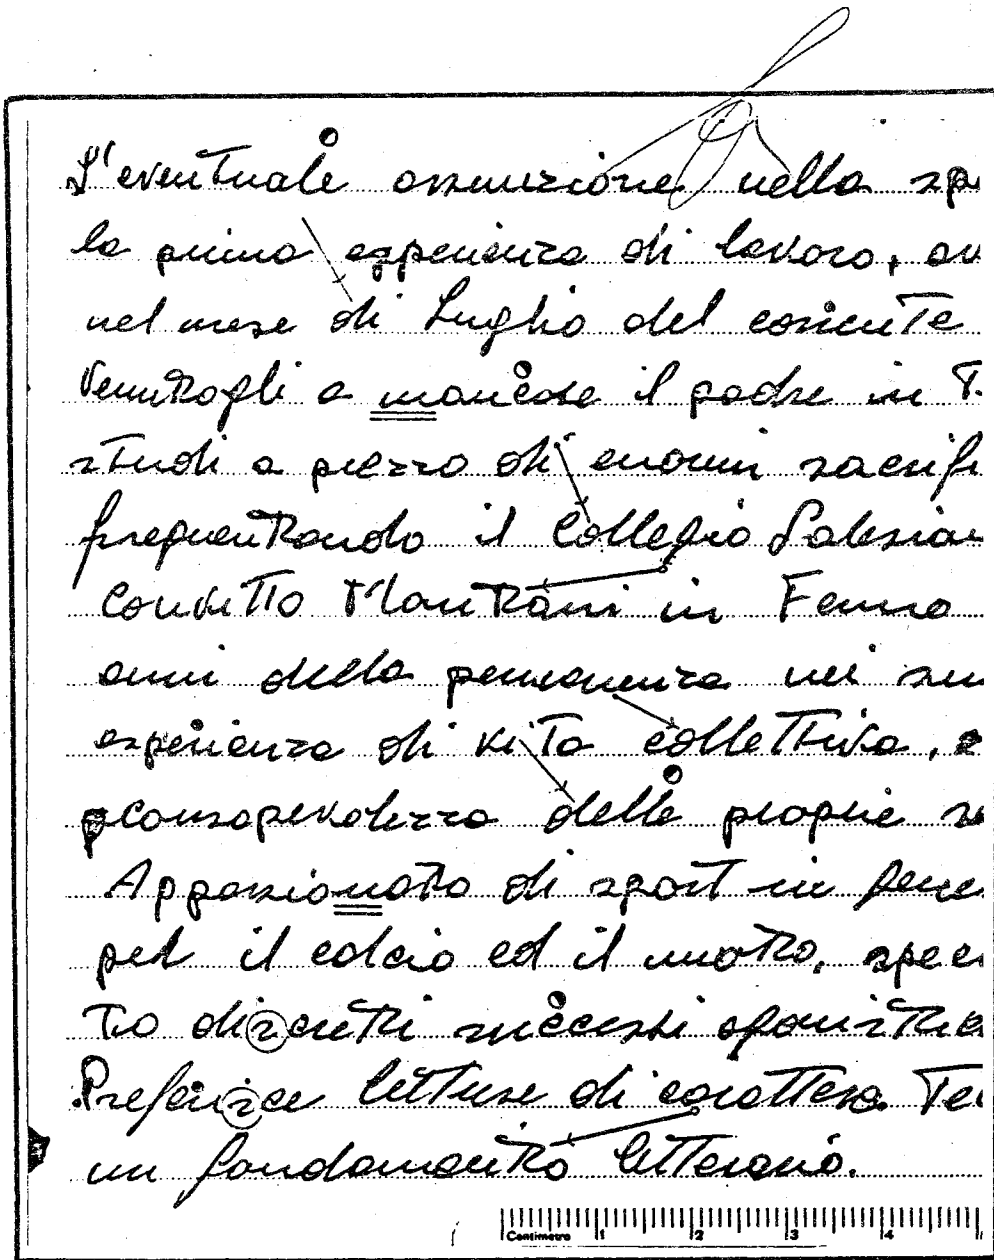 L'eventuale assunzione nella sp
la prima esperienza di lavoro, av
nel mese di Luglio del corrente
venutogli a mancare il padre in T.
studi a prezzo di enormi sacrifi
frequentando il Collegio Salesian
Convitto Montani in Fermo
anni della permanenza nei su
esperienza di vita collettiva, e
consapevolezza delle proprie re
Appassionato di sport in gene
per il calcio ed il nuoto, spec
to discreti successi agonistic
Preferisce letture di carattere Te
un fondamento letterario.
Centimetro 1 2 3 4